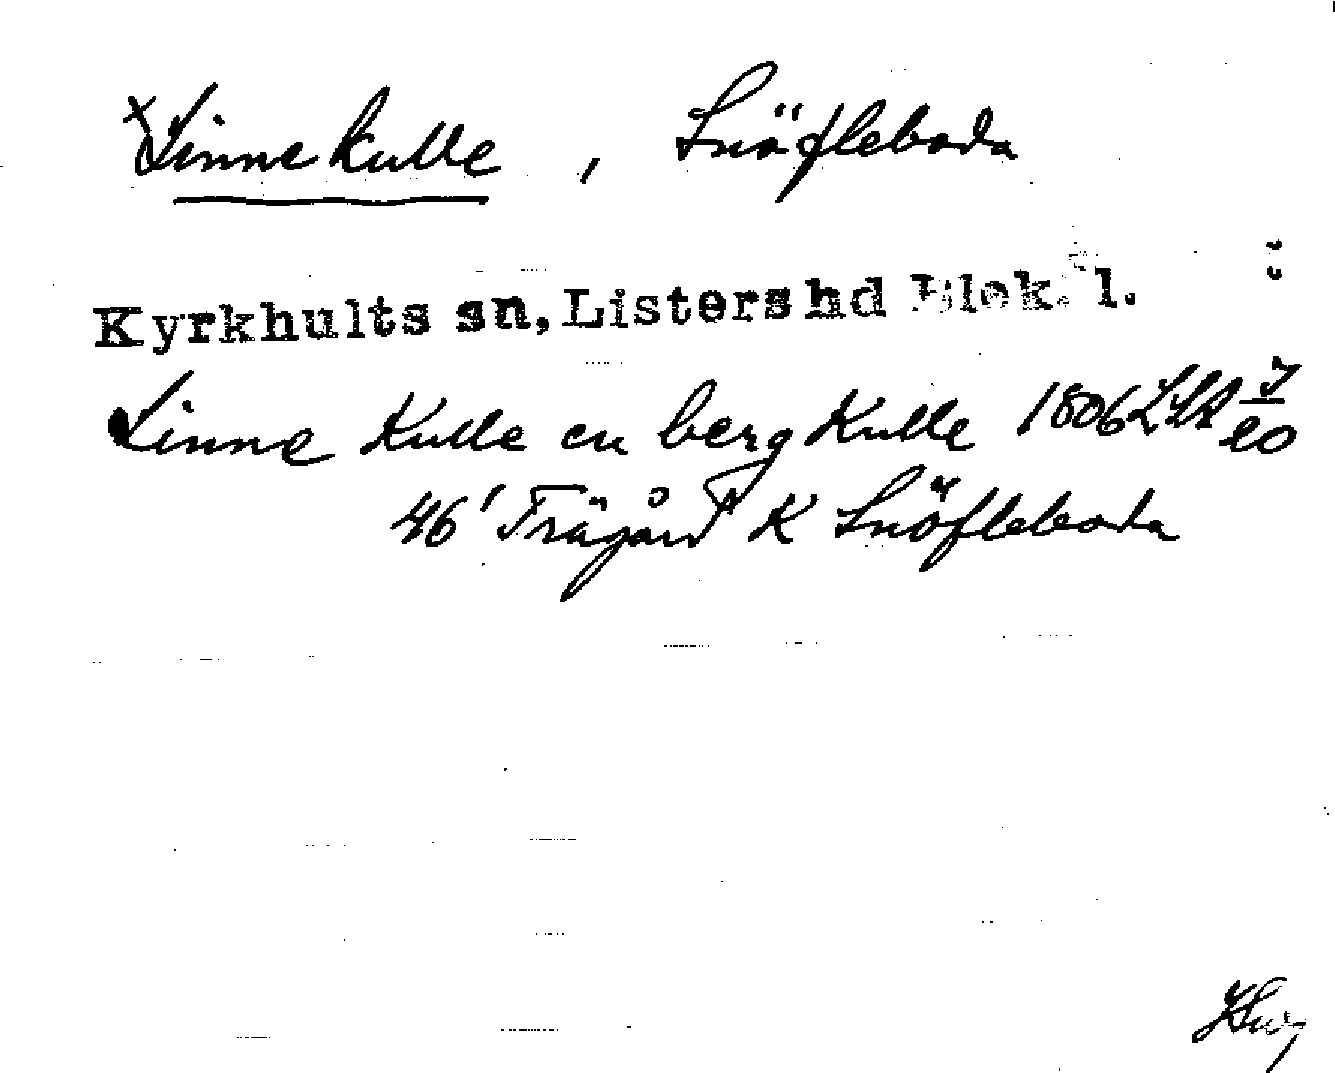 Linnekulle , Snöfleboda
Kyrkhults sn, Listers hd Blek. l.
Linne Kulle en berg Kulle 1806
46' Trägård K Snöfleboda